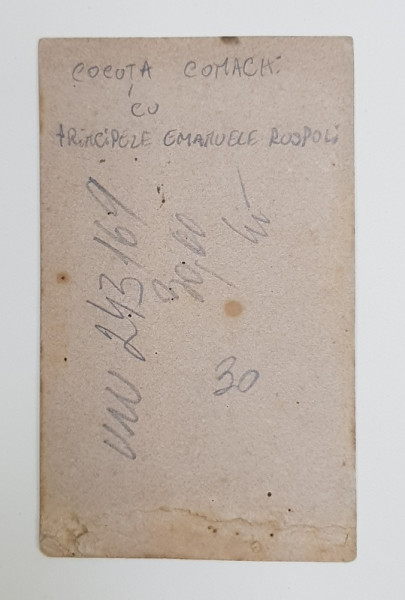 COCUȚA COMACI
CU
PRINCIPELE EMANUELE RUSPOLI
243169
30,00
lei
30